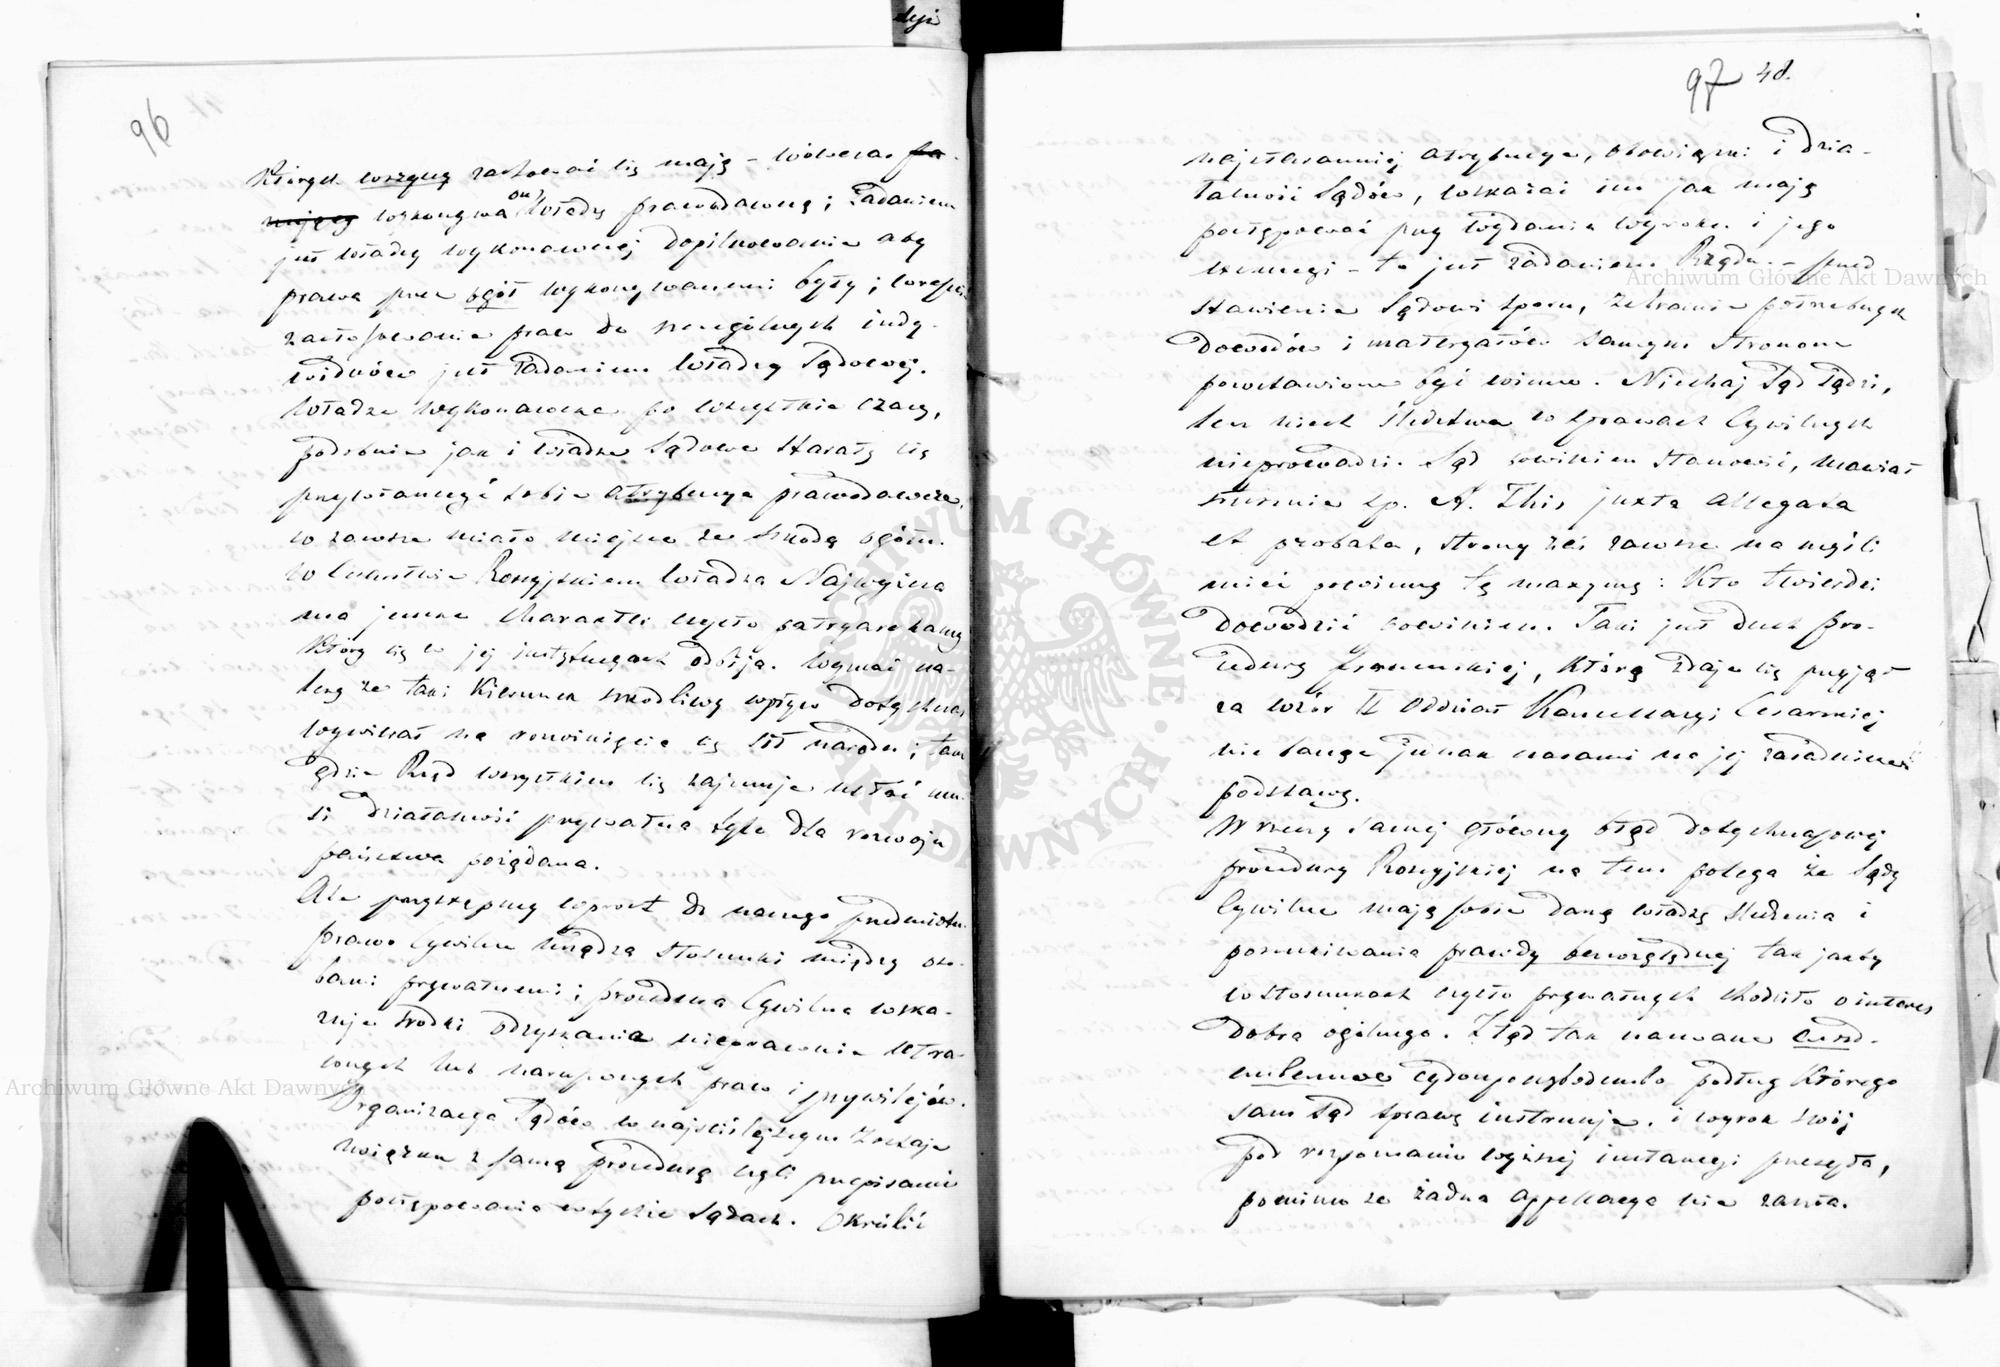 dyi
96
których wszyscy zachować się mają – wówczas
wykonywa on władzę prawodawczą; zadaniem
jest władzy wykonawczej dopilnowanie aby
prawa przez ogół wykonywanemi były;
zastosowanie praw do szczególnych indy-
widuów jest zadaniem władzy Sądowej.
Władza wykonawcza po wszystkie czasy,
podobnie jak i władza Sądowa starały się
przywłaszczyć sobie atrybucye prawodawcze,
co zawsze miało miejsce ze szkodą ogółu.
W Cesarstwie Rossyjskiem władza Najwyższa
ma jeszcze charakter czysto patryarchalny
który się w jej instytucyach odbija. Wyznać na-
leży że taki kierunek szkodliwy wpływ dotychczas
wywierał na rozwinięcie się sił narodu; tam
gdzie Rząd wszystkiem się zajmuje ustać mu-
si działalność prywatna tyle dla rozwoju
państwa pożądana.
Ale przystąpmy wprost do naszego przedmiotu.
Prawo Cywilne urządza stosunki między oso-
bami prywatnemi; procedura Cywilna wska-
zuje środki odzyskania nieprawnie utra-
conych lub naruszonych praw i przywilejów.
Organizacya Sądów w najściślejszym zostaje
związku z samą procedurą czyli przepisami
postępowania w tychże Sądach. Określić
97 48.
najstaranniej atrybucye, obowiązki i dzia-
łalność Sądów, wskazać im jak mają
postępować przy wydaniu wyroku i jego
exekucyi – to jest zadaniem Rządu. – przed
stawienie Sądowi sporu, zebranie potrzebnych
dowodów i materyałów samym stronom
powstawione być winno. Niechaj Sąd sądzi,
lecz niech śledztwa w sprawach Cywilnych
nieprowadzi. Sąd powinien stanowić, mawiał
słusznie śp. A. This juxta allegata
et probata, strony zaś zawsze na myśli
mieć powinny tę maxymę: Kto twierdzi
dowodzić powinien. Taki jest duch pro-
cedury francuzkiej, którą zdaje się przyjął
za wzór II Oddział Kancellaryi Cesarskiej
nie stanąć jednak czasami na jej zasadniczej
podstawy.
W rzeczy samej główny błąd dotychczasowej
procedury Rossyjskiej na tem polega że Sądy
Cywilne mają sobie daną władzę śledzenia i
poszukiwania prawdy bezwzględnej tak jakby
w stosunkach czysto prywatnych chodziło o interes
dobra ogólnego. Ztąd tak nazwane
podług którego
sam Sąd sprawę instruuje, i wyrok swój
pod rozpoznanie wyższej instancyi przesyła,
pomimo że żadna appellacya nie zaszła.
Archiwum Główne Akt Dawnych
Archiwum Główne Akt Dawnych
ARCHIWUM GŁÓWNE AKT DAWNYCH